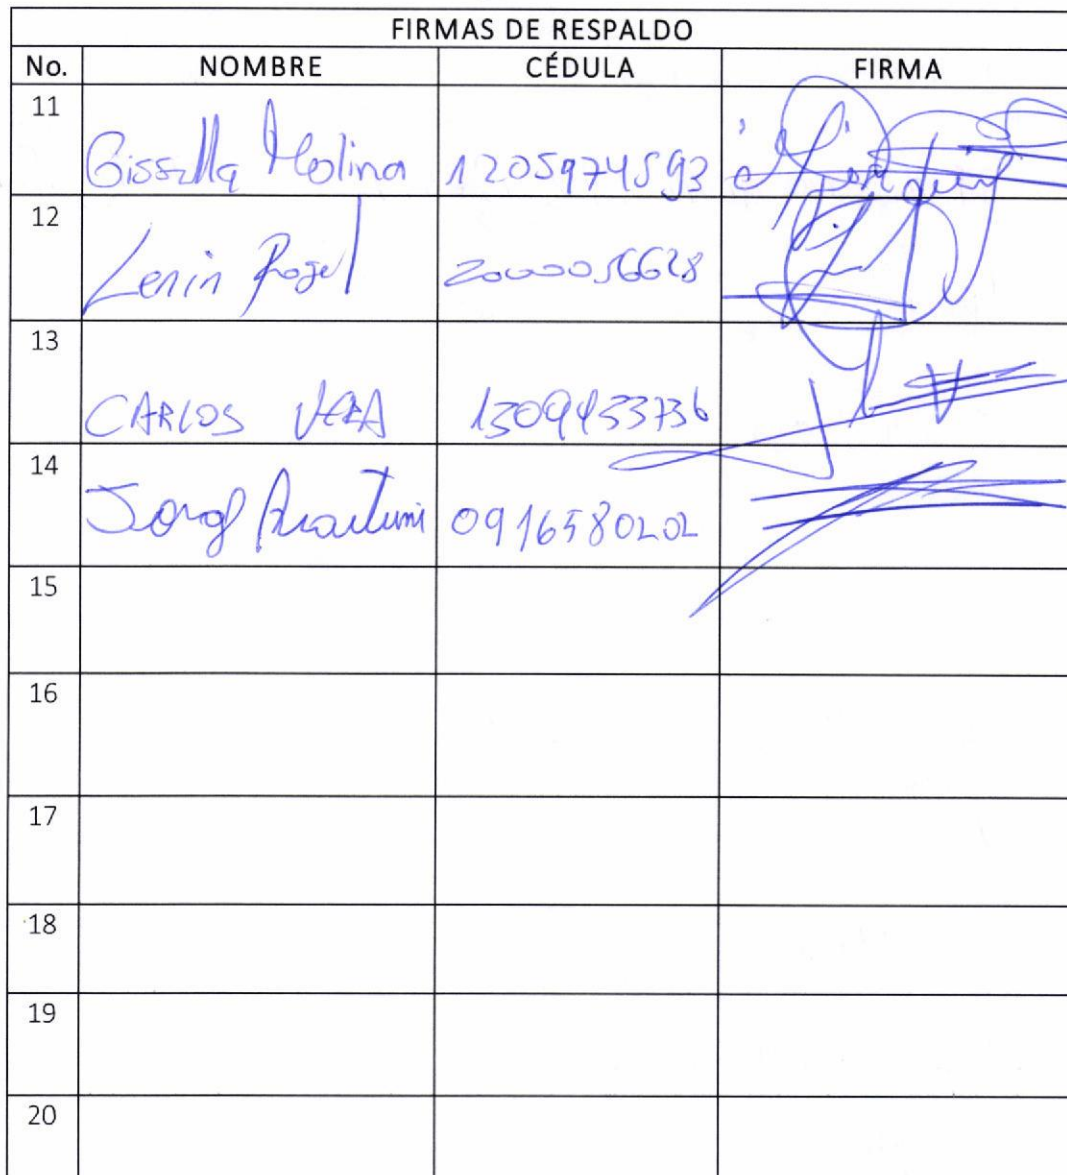 FIRMAS DE RESPALDO
No. NOMBRE CÉDULA FIRMA
11 Gissella Molina 1205974593
12 Lenin Rogel 2000056628
13 CARLOS VERA 1309433736
14 0916580202
15
16
17
18
19
20